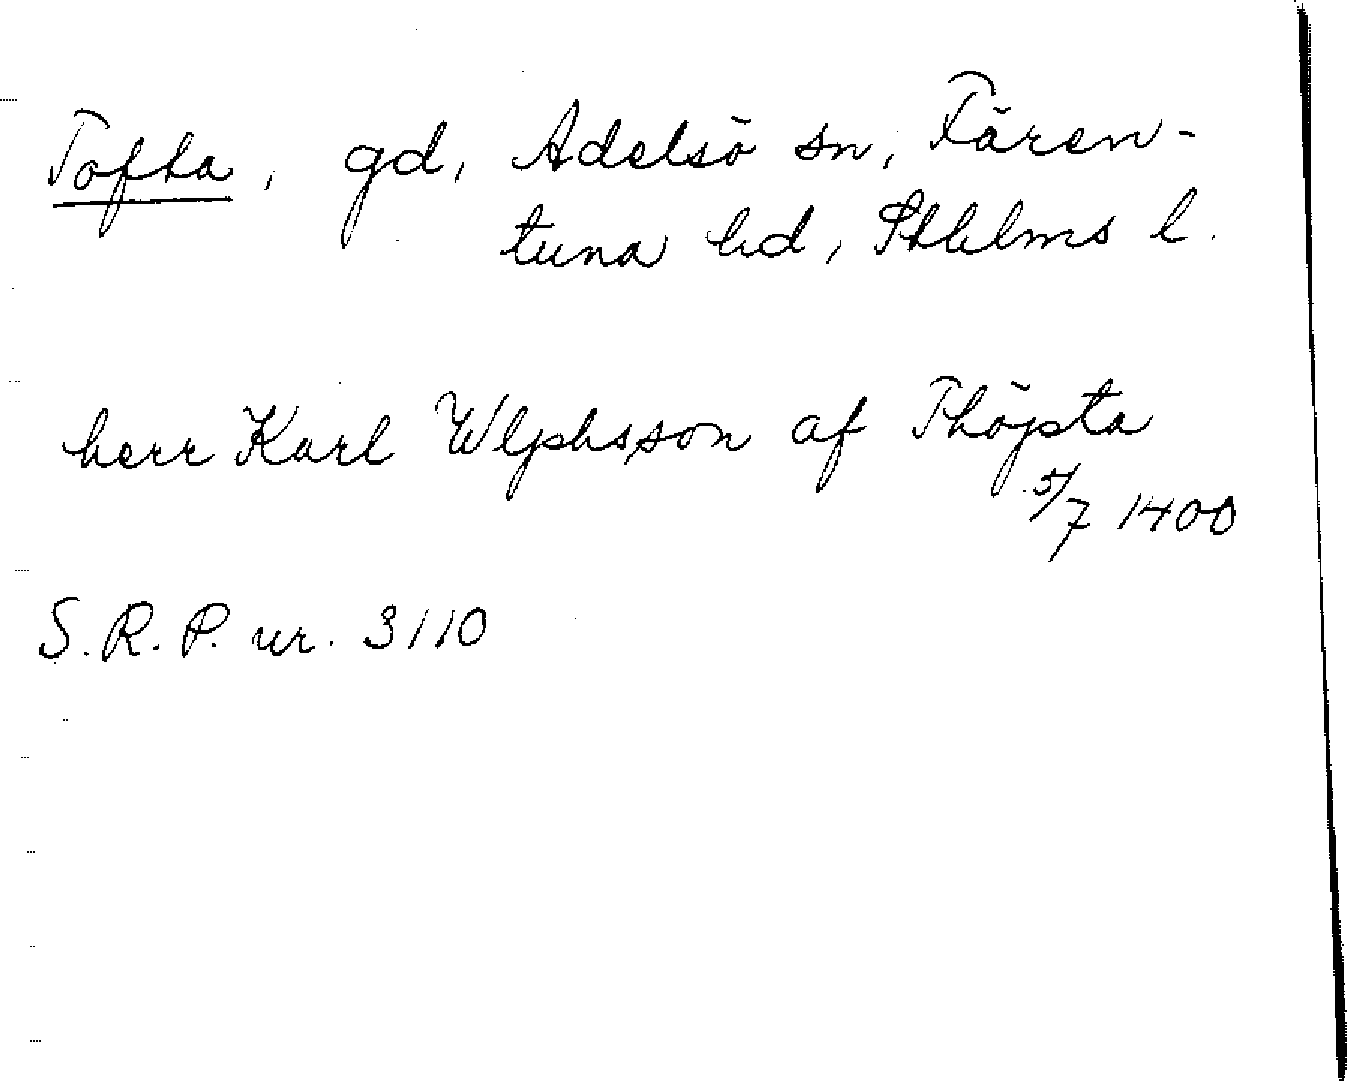 Tofta, gd, Adelsö sn, Fären-
tuna hd, Sthlms l.
herr Karl Wlphsson af Thöpta
5/7 1400
S.R.P. nr. 3110